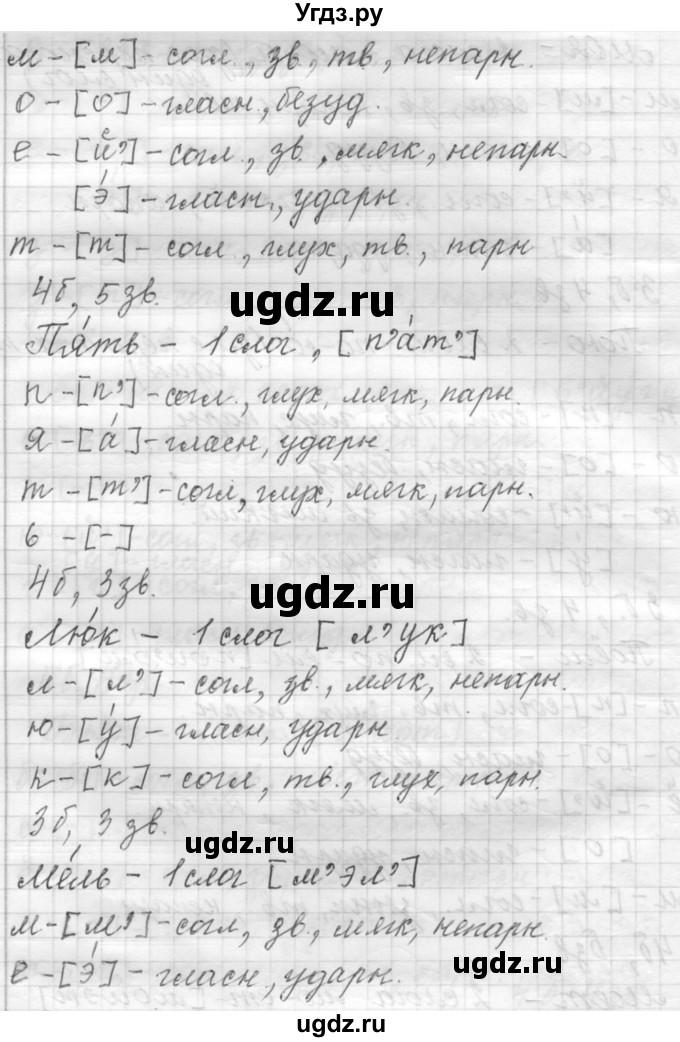 Угдз.ру
м - [м] - согл., зв., тв., непарн.
о - [о] - гласн., безуд.
е - [й'] - согл., зв., мягк., непарн.
[э́] - гласн., ударн.
т - [т] - согл., глух., тв., парн
4б, 5 зв.
ugdz.ru
Пя́ть - 1 слог, [п'а́т']
п - [п'] - согл., глух, мягк, парн.
я - [а́] - гласн, ударн.
т - [т'] - согл, глух, мягк, парн.
ь - [-]
4б, 3 зв.
ugdz.ru
Лю́к - 1 слог [л'ук]
л - [л'] - согл, зв., мягк, непарн.
ю - [у́] - гласн, ударн
к - [к] - согл, тв., глух, парн.
3б, 3 зв.
ugdz.ru
Ме́ль - 1 слог [м'эл']
м - [м'] - согл, зв., мягк, непарн.
е - [э́] - гласн, ударн.
ugdz.ru
ugdz.ru